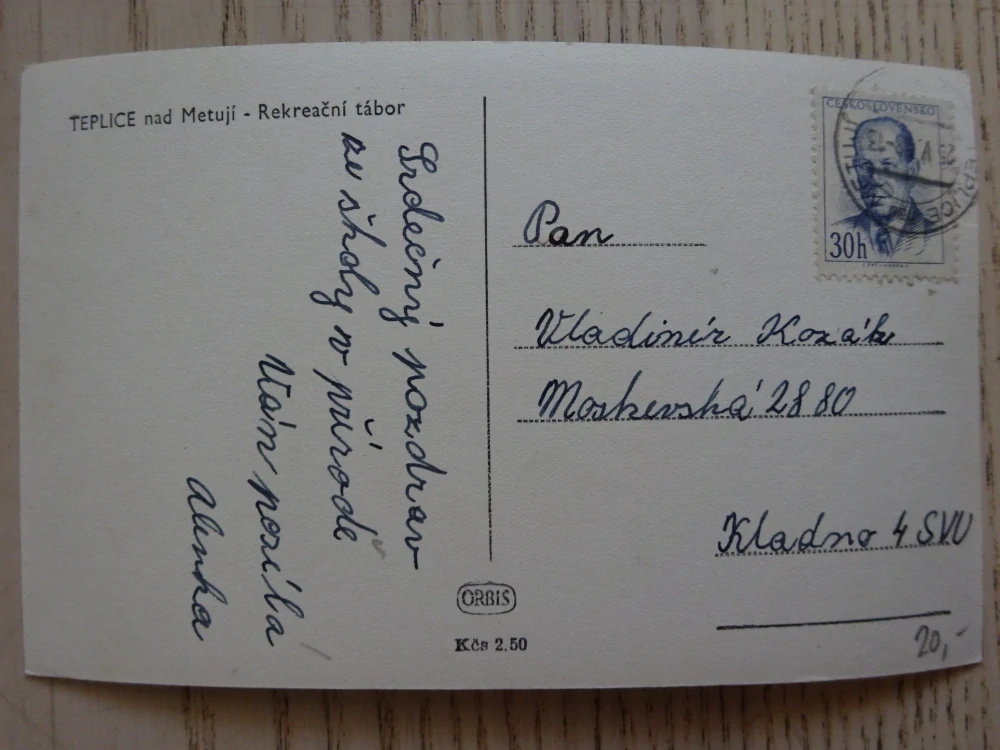 TEPLICE nad Metují - Rekreační tábor
Srdečný pozdrav
ze školy v přírodě
Vám posílá
Alenka
ČESKOSLOVENSKO
30h
Pan
Vladimír Kozák
Moskevská 2880
Kladno 4 SVU
ORBIS
Kčs 2.50
20,-